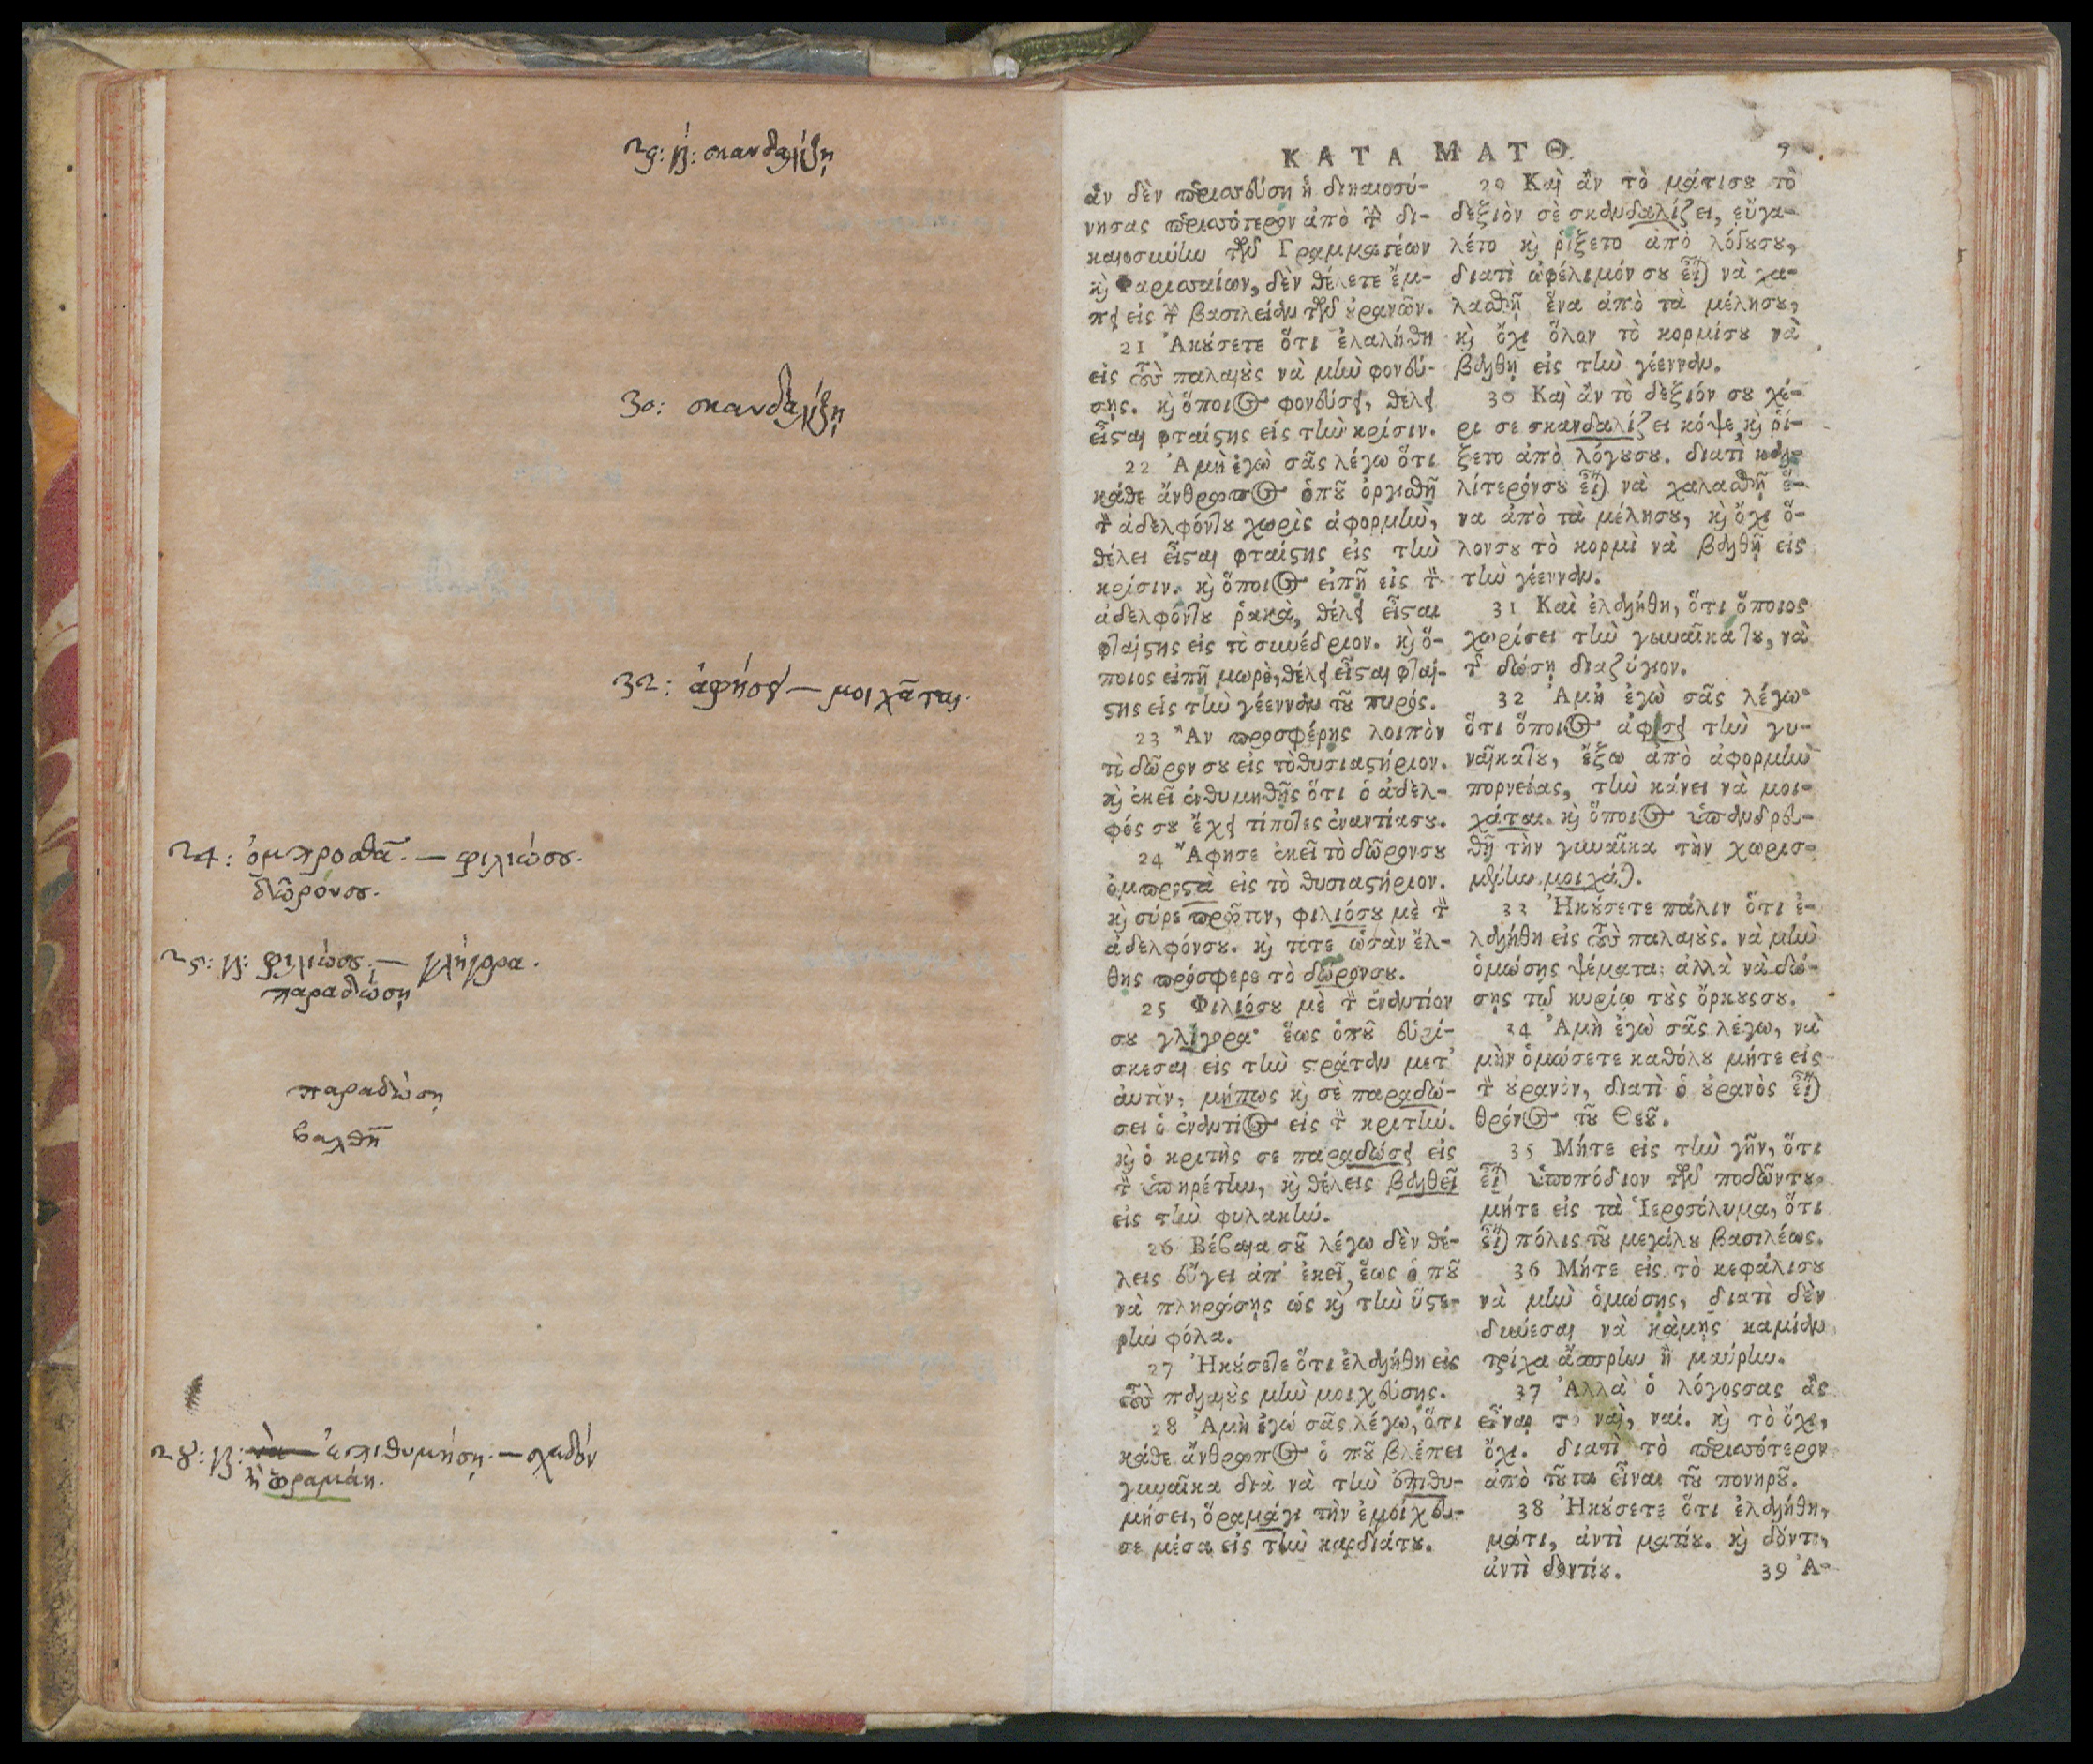 29: γρ: σκανδαλίζῃ
30: σκανδαλίζῃ
32: ἀφήσει — μοιχᾶται.
24: ὀμπροσθᾶ. — φιλιώσου.
δῶρόνσου.
25: γρ: φιλιώσου. — γλήγορα.
παραδώσῃ
παραδώσῃ
βαλθῇ
28: γρ: νὰ ἐπιθυμήσῃ. — σχεδὸν
ΚΑΤΑ ΜΑΤΘ. 9
ἂν δὲν περισσεύσῃ ἡ δικαιοσύ-
νησας περισσότερον ἀπὸ τὴν δι-
καιοσύνην τῶν Γραμματέων
καὶ Φαρισαίων, δὲν θέλετε ἔμ-
πει εἰς τὴν βασιλείαν τῶν οὐρανῶν.
21 Ἀκούσετε ὅτι ἐλαλήθη
εἰς τοὺς παλαιοὺς νὰ μὴν φονεύ-
σῃς. καὶ ὅποιος φονεύσει, θέλει
εἶσται φταίστης εἰς τὴν κρίσιν.
22 Ἀμὴ ἐγὼ σᾶς λέγω ὅτι
κάθε ἄνθρωπος ὁποῦ ὀργισθῇ
τὸν ἀδελφόντου χωρὶς ἀφορμὴν,
θέλει εἶσται φταίστης εἰς τὴν
κρίσιν. καὶ ὅποιος εἰπῇ εἰς τὸν
ἀδελφόντου ῥακὰ, θέλει εἶσται
φταίστης εἰς τὸ συνέδριον. καὶ ὅ-
ποιος εἰπῇ μωρὲ, θέλει εἶσται φταί-
στης εἰς τὴν γέενναν τοῦ πυρός.
23 Ἂν προσφέρῃς λοιπὸν
τὸ δῶρον σου εἰς τὸ θυσιαστήριον.
καὶ ἐκεῖ ἐνθυμηθῇς ὅτι ὁ ἀδελ-
φός σου ἔχει τίποτες ἐναντίασου.
24 Ἄφησε ἐκεῖ τὸ δῶρονσου
ὀμπροστὰ εἰς τὸ θυσιαστήριον.
καὶ σύρε πρῶτον, φιλιόσου μὲ τὸν
ἀδελφόνσου. καὶ τότε ὡσὰν ἔλ-
θῃς πρόσφερε τὸ δῶρονσου.
25 Φιλιόσου μὲ τὸν ἐναντίον
σου γλίγορα· ἕως ὁποῦ εὑρί-
σκεσαι εἰς τὴν στράταν μετ'
αὐτὸν, μήπως καὶ σὲ παραδώ-
σει ὁ ἐναντίος εἰς τὸν κριτὴν.
καὶ ὁ κριτὴς σε παραδώσει εἰς
τὸν ὑπηρέτην, καὶ θέλεις βαλθεῖ
εἰς τὴν φυλακὴν.
26 Βέβαια σοῦ λέγω δὲν θέ-
λεις εὔγει ἀπ' ἐκεῖ, ἕως ὁποῦ
νὰ πληρώσῃς ὡς καὶ τὴν ὕστε-
ρην φόλα.
27 Ἠκούσετε ὅτι ἐλαλήθη εἰς
τοὺς παλαιοὺς μὴν μοιχεύσῃς.
28 Ἀμὴ ἐγὼ σᾶς λέγω, ὅτι
κάθε ἄνθρωπος ὁποῦ βλέπει
γυναῖκα διὰ νὰ τὴν ἐπιθυ-
μήσει, ὅραμάγι τὴν ἐμοίχευ-
σε μέσα εἰς τὴν καρδιάτου.
29 Καὶ ἂν τὸ μάτισου τὸ
δεξιὸν σὲ σκανδαλίζει, εὔγα-
λέτο καὶ ῥίξετο ἀπὸ λόγουσου,
διατὶ ὠφέλιμόν σου εἶναι νὰ χα-
λασθῇ ἕνα ἀπὸ τὰ μέλησου,
καὶ ὄχι ὅλον τὸ κορμίσου νὰ
βαλθῇ εἰς τὴν γέενναν.
30 Καὶ ἂν τὸ δεξιόν σου χέ-
ρι σε σκανδαλίζει κόψε καὶ ῥί-
ξετο ἀπὸ λόγουσου. διατὶ κα-
λίτερόνσου εἶναι νὰ χαλασθῇ ἕ-
να ἀπὸ τὰ μέλησου, καὶ ὄχι ὅ-
λονσου τὸ κορμὶ νὰ βαλθῇ εἰς
τὴν γέενναν.
31 Καὶ ἐλαλήθη, ὅτι ὅποιος
χωρίσει τὴν γυναῖκατου, νὰ
τῆς δώσῃ διαζύγιον.
32 Ἀμὴ ἐγὼ σᾶς λέγω·
ὅτι ὅποιος ἀφίσει τὴν γυ-
ναῖκατου, ἔξω ἀπὸ ἀφορμὴν
πορνείας, τὴν κάνει νὰ μοι-
χάται. καὶ ὅποιος ὑπανδρευ-
θῇ τὴν γυναῖκα τὴν χωρισ-
μένην μοιχάται.
33 Ἠκούσετε πάλιν ὅτι ἐ-
λαλήθη εἰς τοὺς παλαιοὺς. νὰ μὴν
ὁμώσῃς ψέματα· ἀλλὰ νὰ δώ-
σῃς τῷ κυρίῳ τοὺς ὅρκουςσου.
34 Ἀμὴ ἐγὼ σᾶς λέγω, νὰ
μὴν ὁμώσετε καθόλου μήτε εἰς
τὸν οὐρανὸν, διατὶ ὁ οὐρανὸς εἶναι
θρόνος τοῦ Θεοῦ.
35 Μήτε εἰς τὴν γῆν, ὅτι
εἶναι ὑποπόδιον τῶν ποδῶντου.
μήτε εἰς τὰ Ἱεροσόλυμα, ὅτι
εἶναι πόλις τοῦ μεγάλου βασιλέως.
36 Μήτε εἰς τὸ κεφάλισου
νὰ μὴν ὁμώσῃς, διατὶ δὲν
δύνεσαι νὰ κάμῃς καμίαν
τρίχα ἄσπρην ἢ μαύρην.
37 Ἀλλὰ ὁ λόγοςσας ἂς
εἶναι τὸ ναὶ, ναί. καὶ τὸ ὄχι,
ὄχι. διατὶ τὸ περισσότερον
ἀπὸ τοῦτα εἶναι τοῦ πονηροῦ.
38 Ἠκούσετε ὅτι ἐλαλήθη,
μάτι, ἀντὶ ματίου. καὶ δόντι,
ἀντὶ δοντίου.
39 Ἀ-